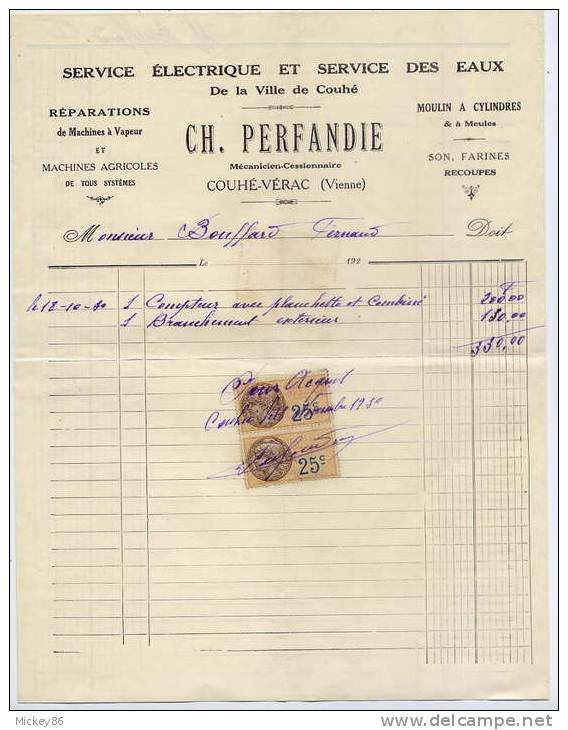 SERVICE ÉLECTRIQUE ET SERVICE DES EAUX
De la Ville de Couhé
RÉPARATIONS
de Machines à Vapeur
ET
MACHINES AGRICOLES
DE TOUS SYSTÈMES
CH. PERFANDIE
Mécanicien-Cessionnaire
COUHÉ-VÉRAC (Vienne)
MOULIN A CYLINDRES
& à Meules
SON, FARINES
RECOUPES
Monsieur Bouffard Fernand Doit
Le 192
le 12-10-30 1 Compteur avec planchette et Combiné 200.00
1 Branchement extérieur 130,00
330,00
Pour Acquit
Couhé 1930
25c
25c
Mickey86
www.delcampe.net